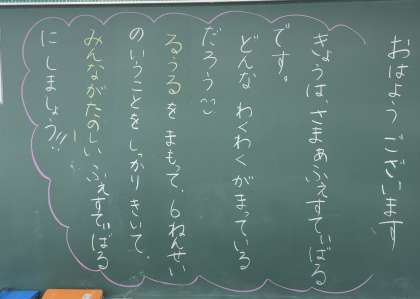 おはよう ございます
きょうは、さまぁふぇすてぃばる
です。
どんな わくわく がまっている
だろう
るうる を まもって、6ねんせい
のいうことを しっかり きいて、
みんながたのしい ふぇすてぃばる
に しましょう!!